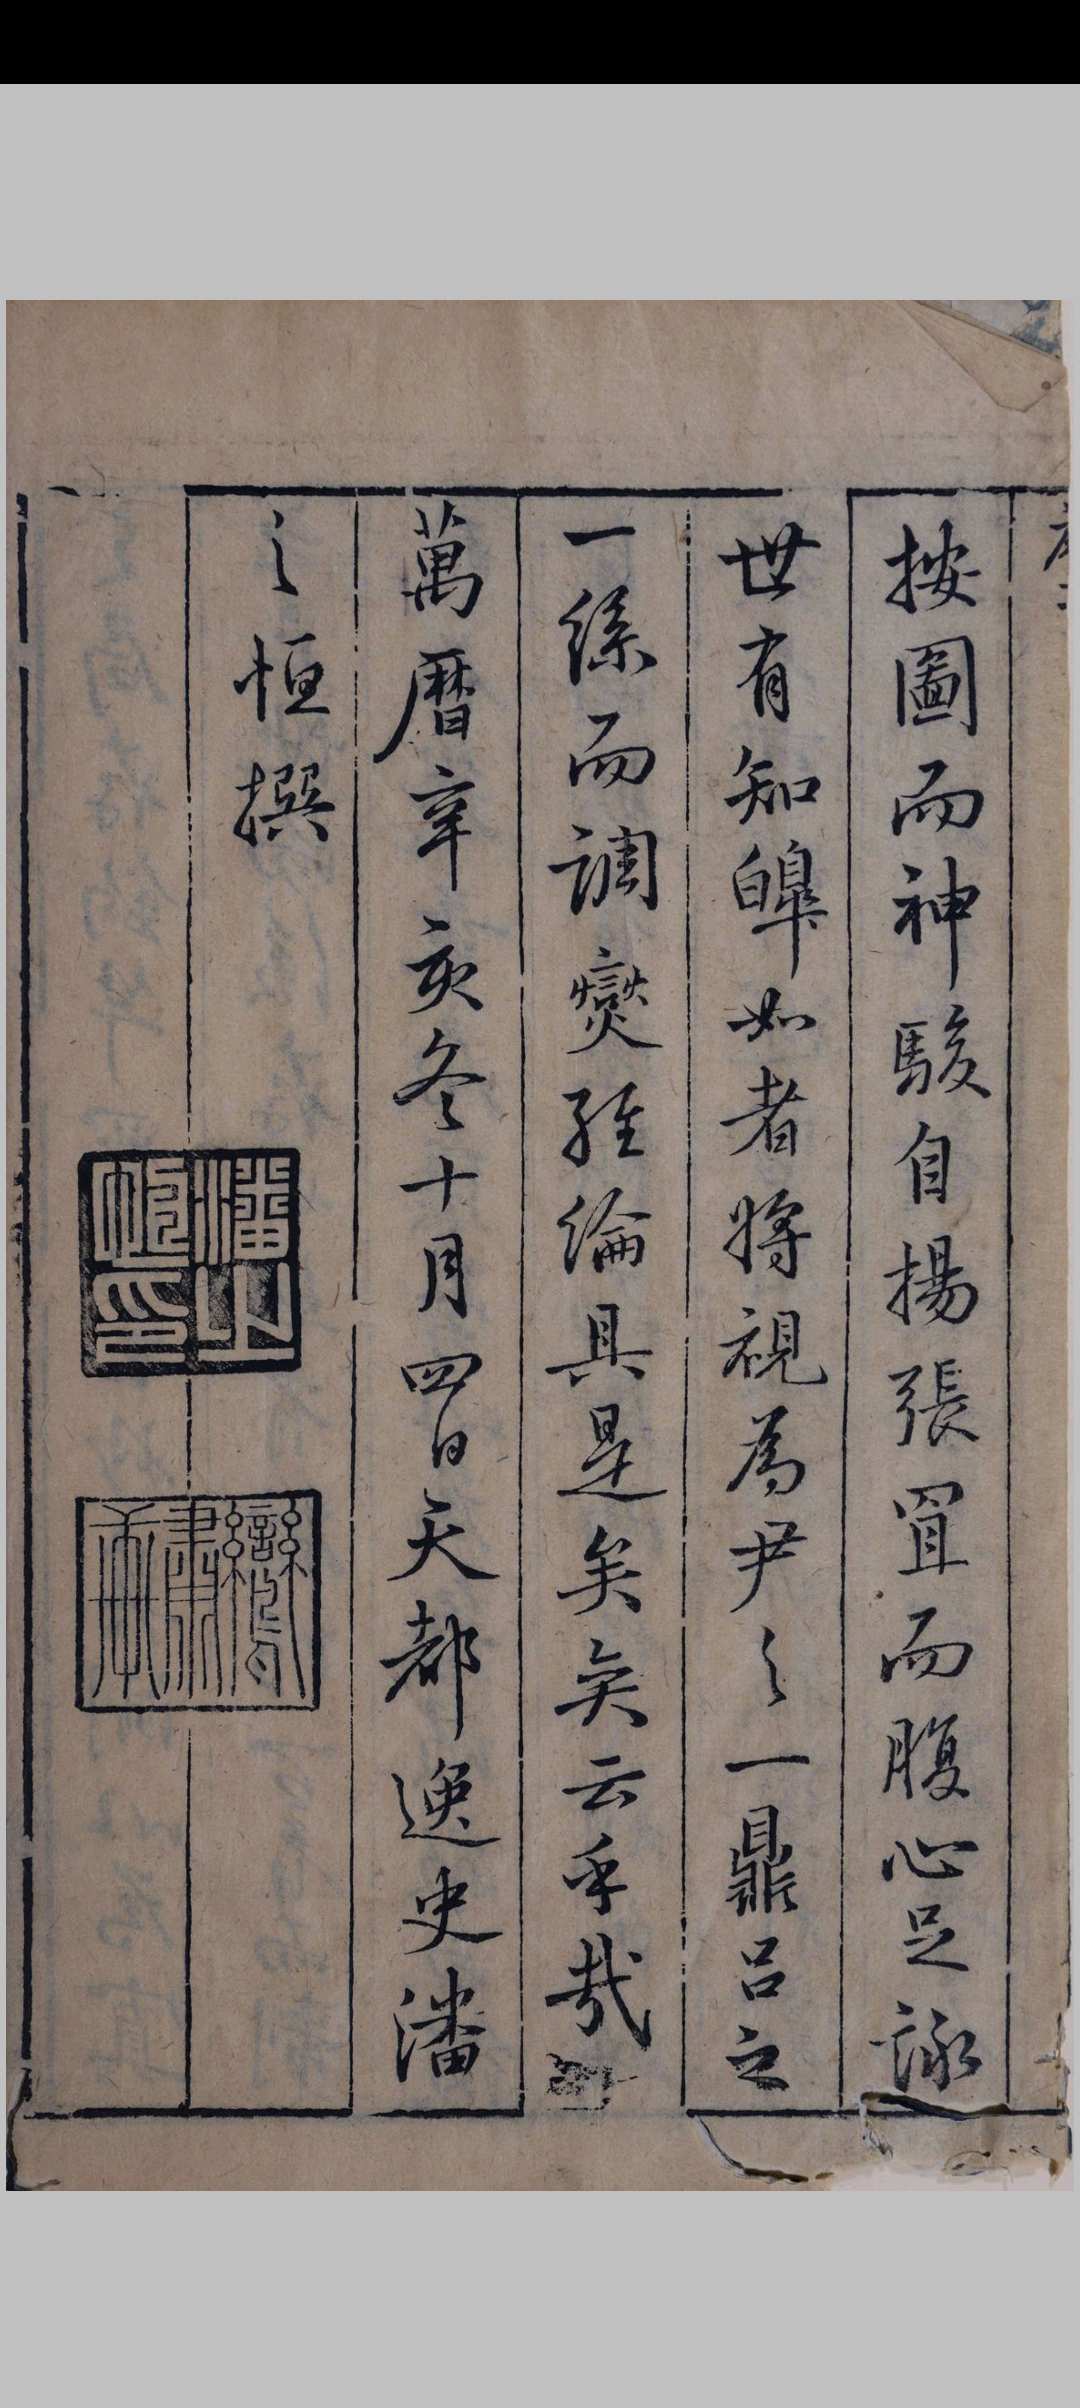 按圖而神駿自揚張罝而腹心足詠
世有知皥如者將視爲尹之一鼎吕之
一絲而調燮經綸具是矣矣云乎哉
萬曆辛亥冬十月四日天都逸史潘
之恒撰
潘之恒印
鸞嘯